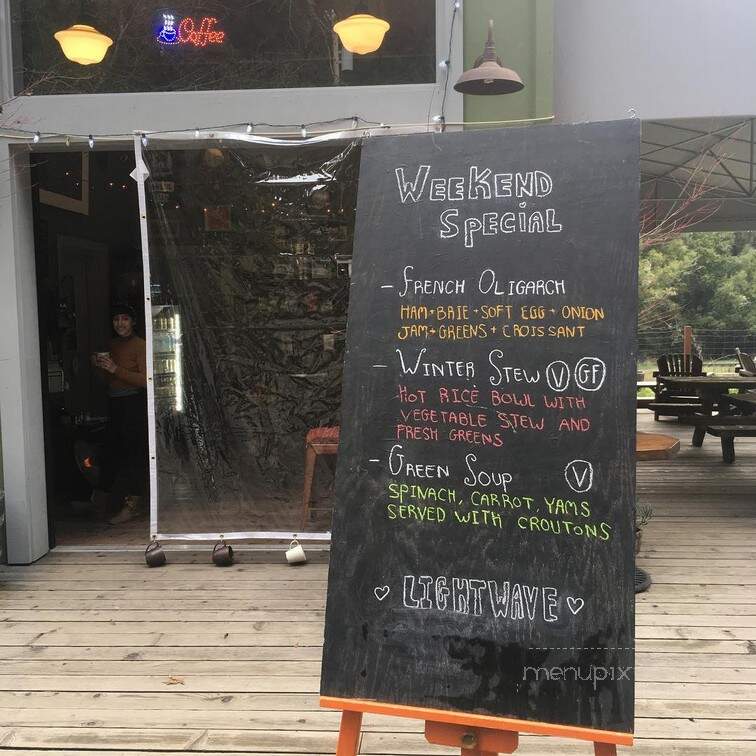 Coffee
WEEKEND
SPECIAL
- FRENCH OLIGARCH
HAM + BRIE + SOFT EGG + ONION
JAM + GREENS + CROISSANT
- WINTER STEW V GF
HOT RICE BOWL WITH
VEGETABLE STEW AND
FRESH GREENS
- GREEN SOUP V
SPINACH, CARROT, YAMS
SERVED WITH CROUTONS
♡ LIGHTWAVE ♡
menupix